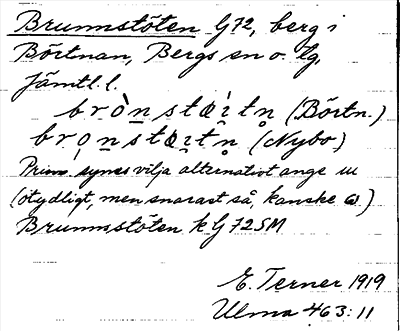 Brunnstöten G72, berg i
Börtnan, Bergs sn o. tg,
Jämtl. l.
bròn̥stæi̯tn̥ (Börtn.)
bro̩nstæi̯tn̥ (Nybo)
Prim. synes vilja alternativt ange ɯ
(otydligt, men snarast så, kanske ω)
Brunnstöten k G 72 SM
E. Terner 1919
Ulma 463:11